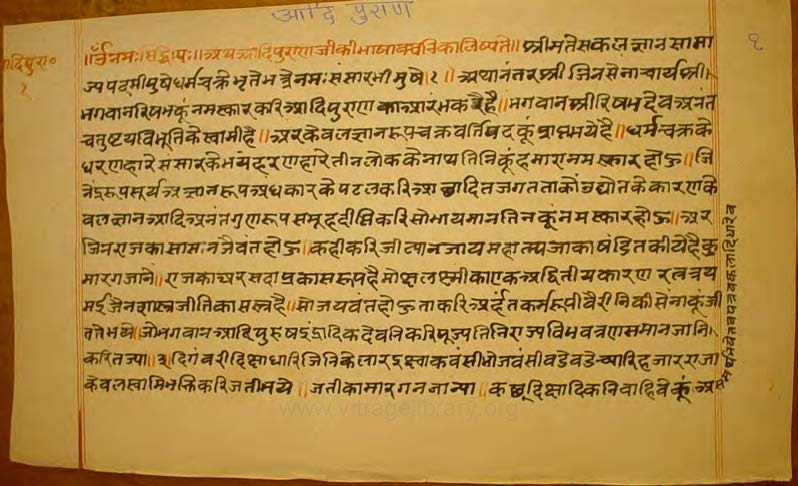 आदि पुराण
१
आदिपुरा०
१
॥ॐ नमः सिद्धेभ्यः॥ अथ आदिपुराणजी की भाषा वचनिका लिष्यते॥ श्रीमते सकलज्ञानसाम्रा
ज्यपदमीयुषे धर्मचक्रभृते भर्त्रे नमः संसारभीमुषे।१। अथानंतर श्री जिनसेनाचार्य श्री
भगवान रिषभकूं नमस्कार करि आदिपुराण का प्रारंभ करै है॥ भगवान श्री रिषभदेव अनंत
चतुष्टय विभूति के स्वामी है॥ अर केवलज्ञानरूप चक्रवर्तिपदकूं प्राप्त भये है॥ धर्मचक्र के
धरणहारे संसार के भय हरणहारे तीन लोक के नाथ तिनिकूं हमारा नमस्कार होऊ॥ जि
नेंद्ररूप सूर्य अज्ञानरूप अंधकार के पटल करि आछादित जगत ताकों उद्योत के कारण के
वलज्ञान आदि अनंत गुणरूप समूह दीप्ति करि सोभायमान तिनकूं नमस्कार होऊ॥ अर
जिनराज का सासन जैवंत होऊ॥ कही करि जीत्या न जाय महात्म्य जाका षंडित कीये है कु
मारग जानें॥ सदा प्रकासरूप है मोक्षलक्ष्मी का एक अद्वितीय कारण रत्नत्रय
मई जैनशास्त्र जीति का सस्त्र है॥ सो जयवंत होऊ ता करि अर्हंत कर्मरूपी वैरीनि की सेनाकूं जी
तते भये॥ जो भगवान आदिपुरुष इंद्रादिक देवनि करि पूज्य तिनि राज्य विभव त्रण समान जानि
करि तज्या॥ दिगंबरी दिक्षा धारि जिनिके लार इक्ष्वाकवंसी भोजवंसी बडे बडे च्यारि हजार राजा
केवल स्वामिभक्ति करि जती भये॥ जती का मारग न जान्या॥ कछू दिक्षादिक निवाहिवेकूं अस
www.vitragelibrary.org